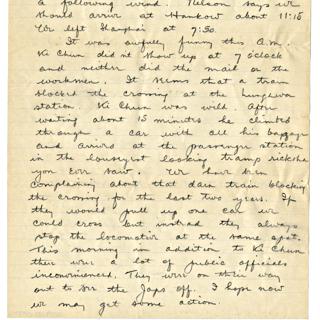 a following wind. Nelson says we
should arrive at Hankow about 11:15
We left Shanghai at 7:30.
It was awfully funny this A.M.
Ki Chun didnt show up at 7 oclock
and neither did the mail or the
workmen. It seems that a train
blocked the crossing at the Lunghwa
station. Ki Chun was wild. After
waiting about 15 minutes he climbed
through a car with all his baggage
and arrived at the passenger station
in the lousyest looking tramp ricksha
you ever saw. We have been
complaining about that darn train blocking
the crossing for the last two years. If
they would pull up one car we
could cross but instead they always
stop the locomotive at the same spot.
This morning in addition to Ki Chun
there were a lot of public officials
inconvenienced. They were on their way
out to see the Japs off. I hope now
we may get some action.